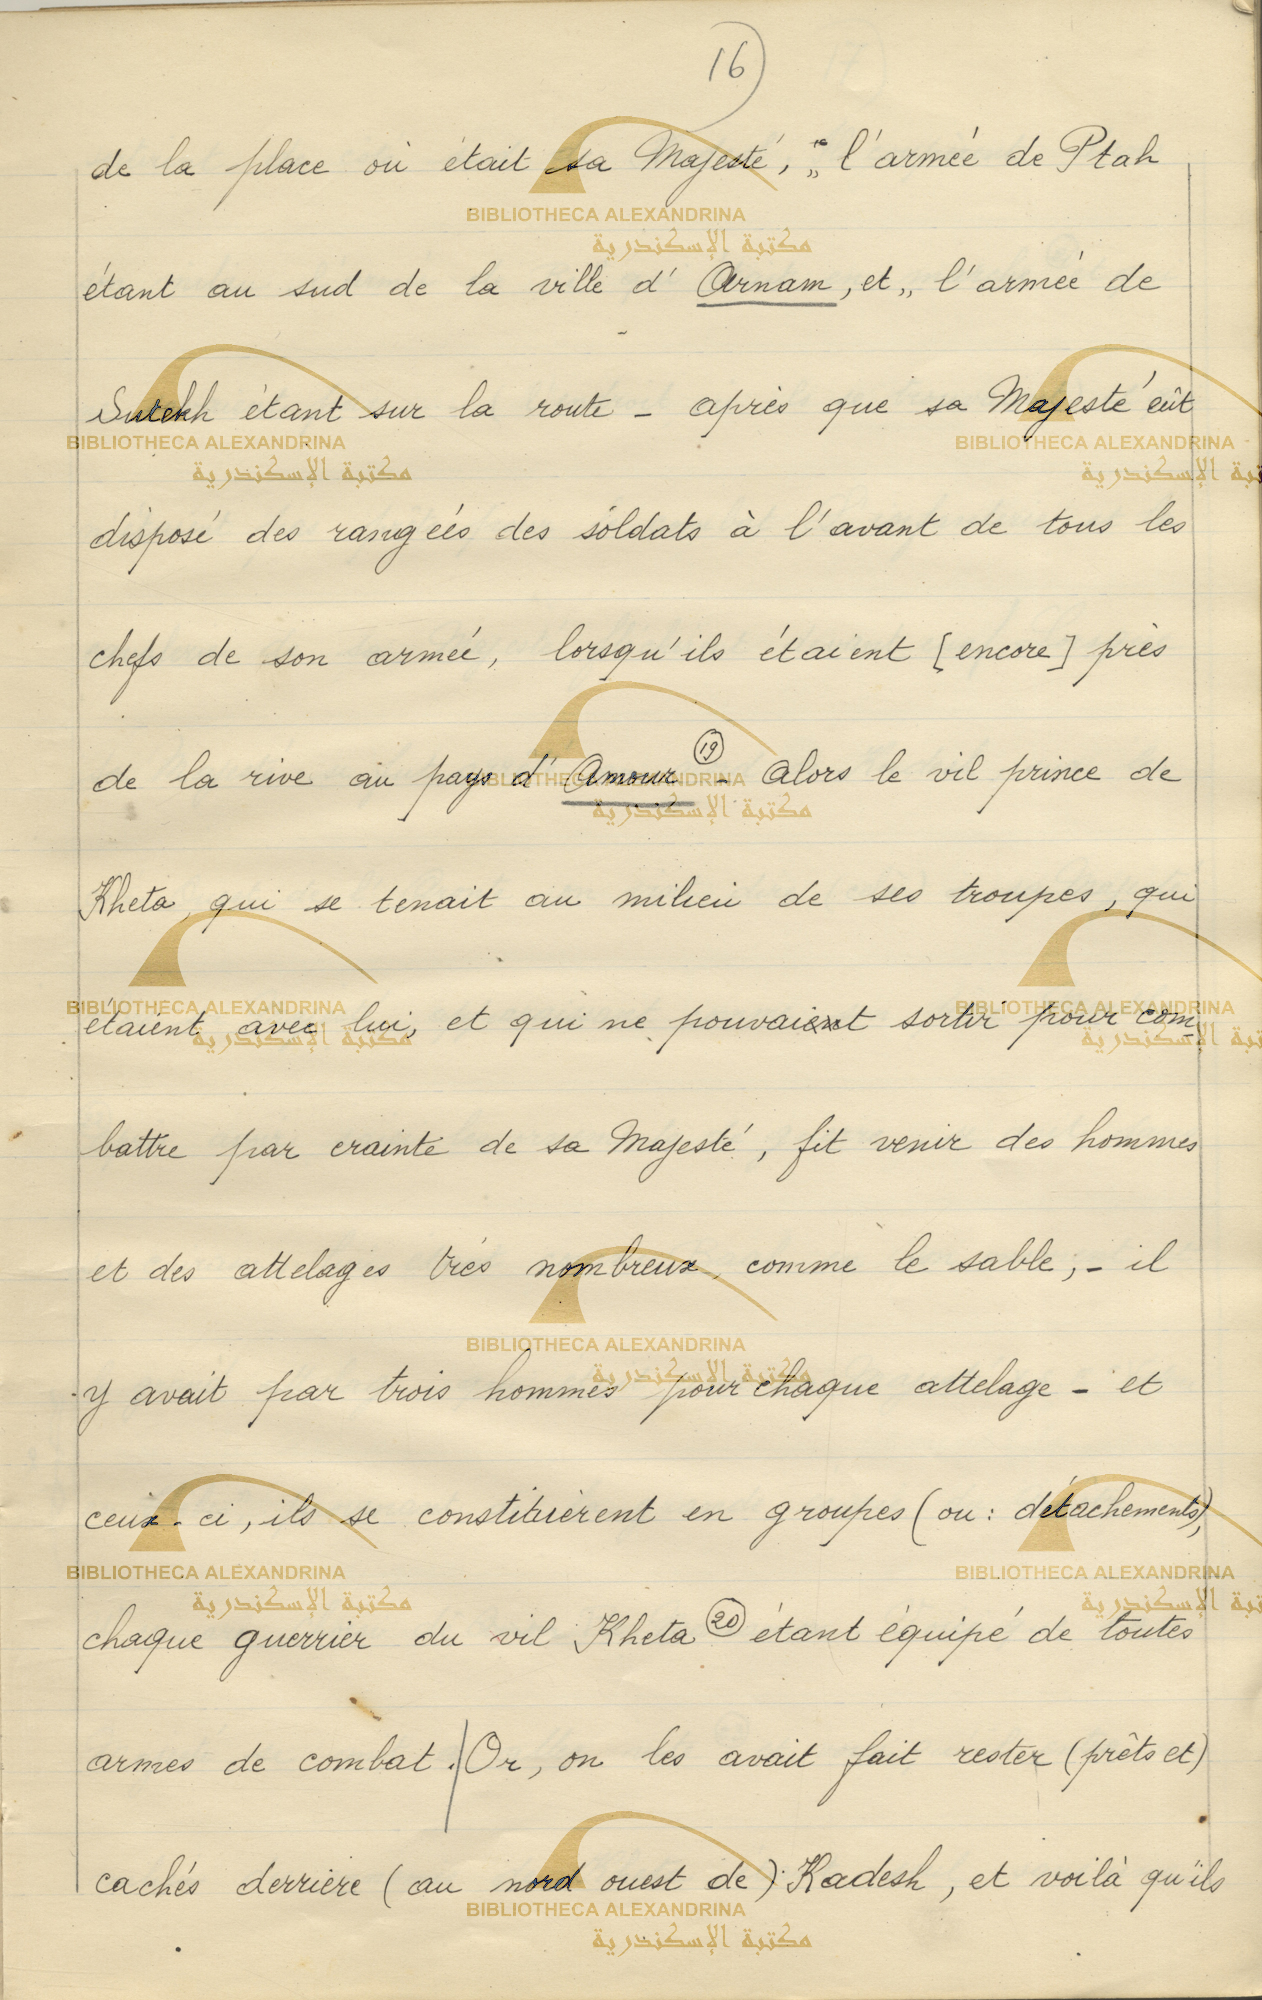 16
de la place où était sa Majesté, „ l'armée de Ptah
étant au sud de la ville d' Arnam, et „ l'armée de
Sutekh étant sur la route - après que sa Majesté eût
disposé des rangées des soldats à l'avant de tous les
chefs de son armée, lorsqu'ils étaient [encore] près
de la rive au pays d' Amour (19) - Alors le vil prince de
Kheta, qui se tenait au milieu de ses troupes, qui
étaient avec lui, et qui ne pouvaient sortir pour com-
battre par crainte de sa Majesté, fit venir des hommes
et des attelages très nombreux, comme le sable; - il
y avait par trois hommes pour chaque attelage - et
ceux-ci, ils se constituèrent en groupes (ou : détachements),
chaque guerrier du vil Kheta (20) étant équipé de toutes
armes de combat. / Or, on les avait fait rester (prêts et)
cachés derrière (au nord ouest de) Kadesh, et voilà qu'ils
BIBLIOTHECA ALEXANDRINA
مكتبة الإسكندرية